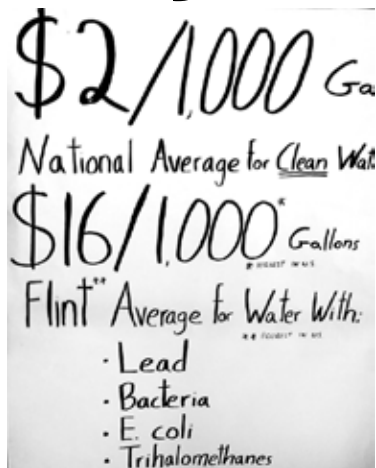 $2/1,000 Ga
National Average for Clean Wat
$16/1,000* Gallons
* HIGHEST IN U.S.
Flint** Average for Water With:
** POOREST IN US
· Lead
· Bacteria
· E. coli
· Trihalomethanes